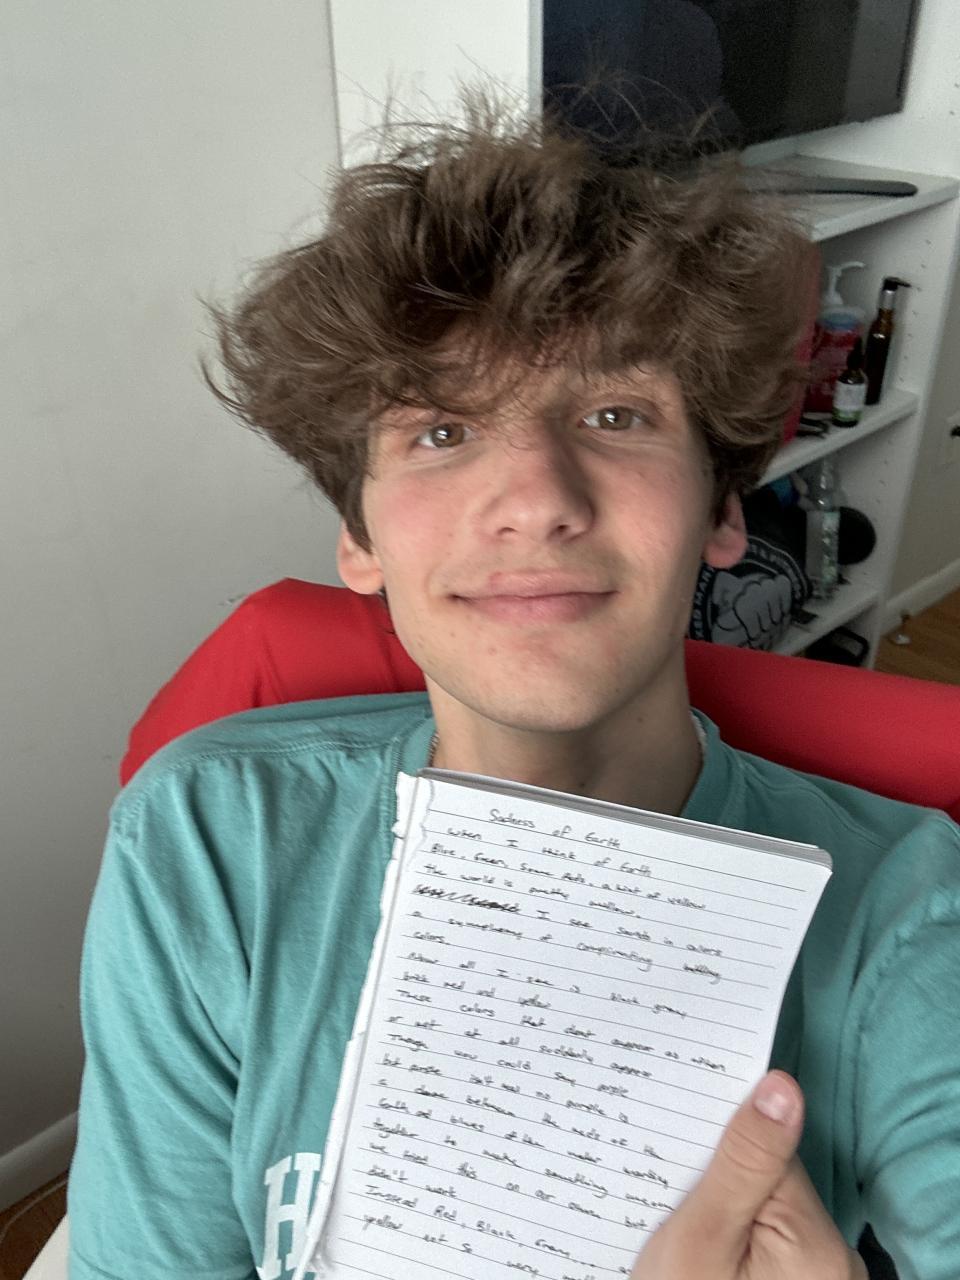 Sadness of Earth
when I think of Earth
Blue, Green, Some Reds, a hint of yellow
the world is pretty mellow.
I see sounds in colors
a symphony of complimenting
colors.
Now all I see is black gray
brick red and yellow
These colors that dont appear as often
or not at all suddenly appear
Though you could say purple
but purple isn't bad no purple is
a dance between the reds of the
Earth and blues of the water working
together to make something
we tried this on our own but
didn't work
Instead Red, Black, Gray....
yellow not so
H
& FITNES